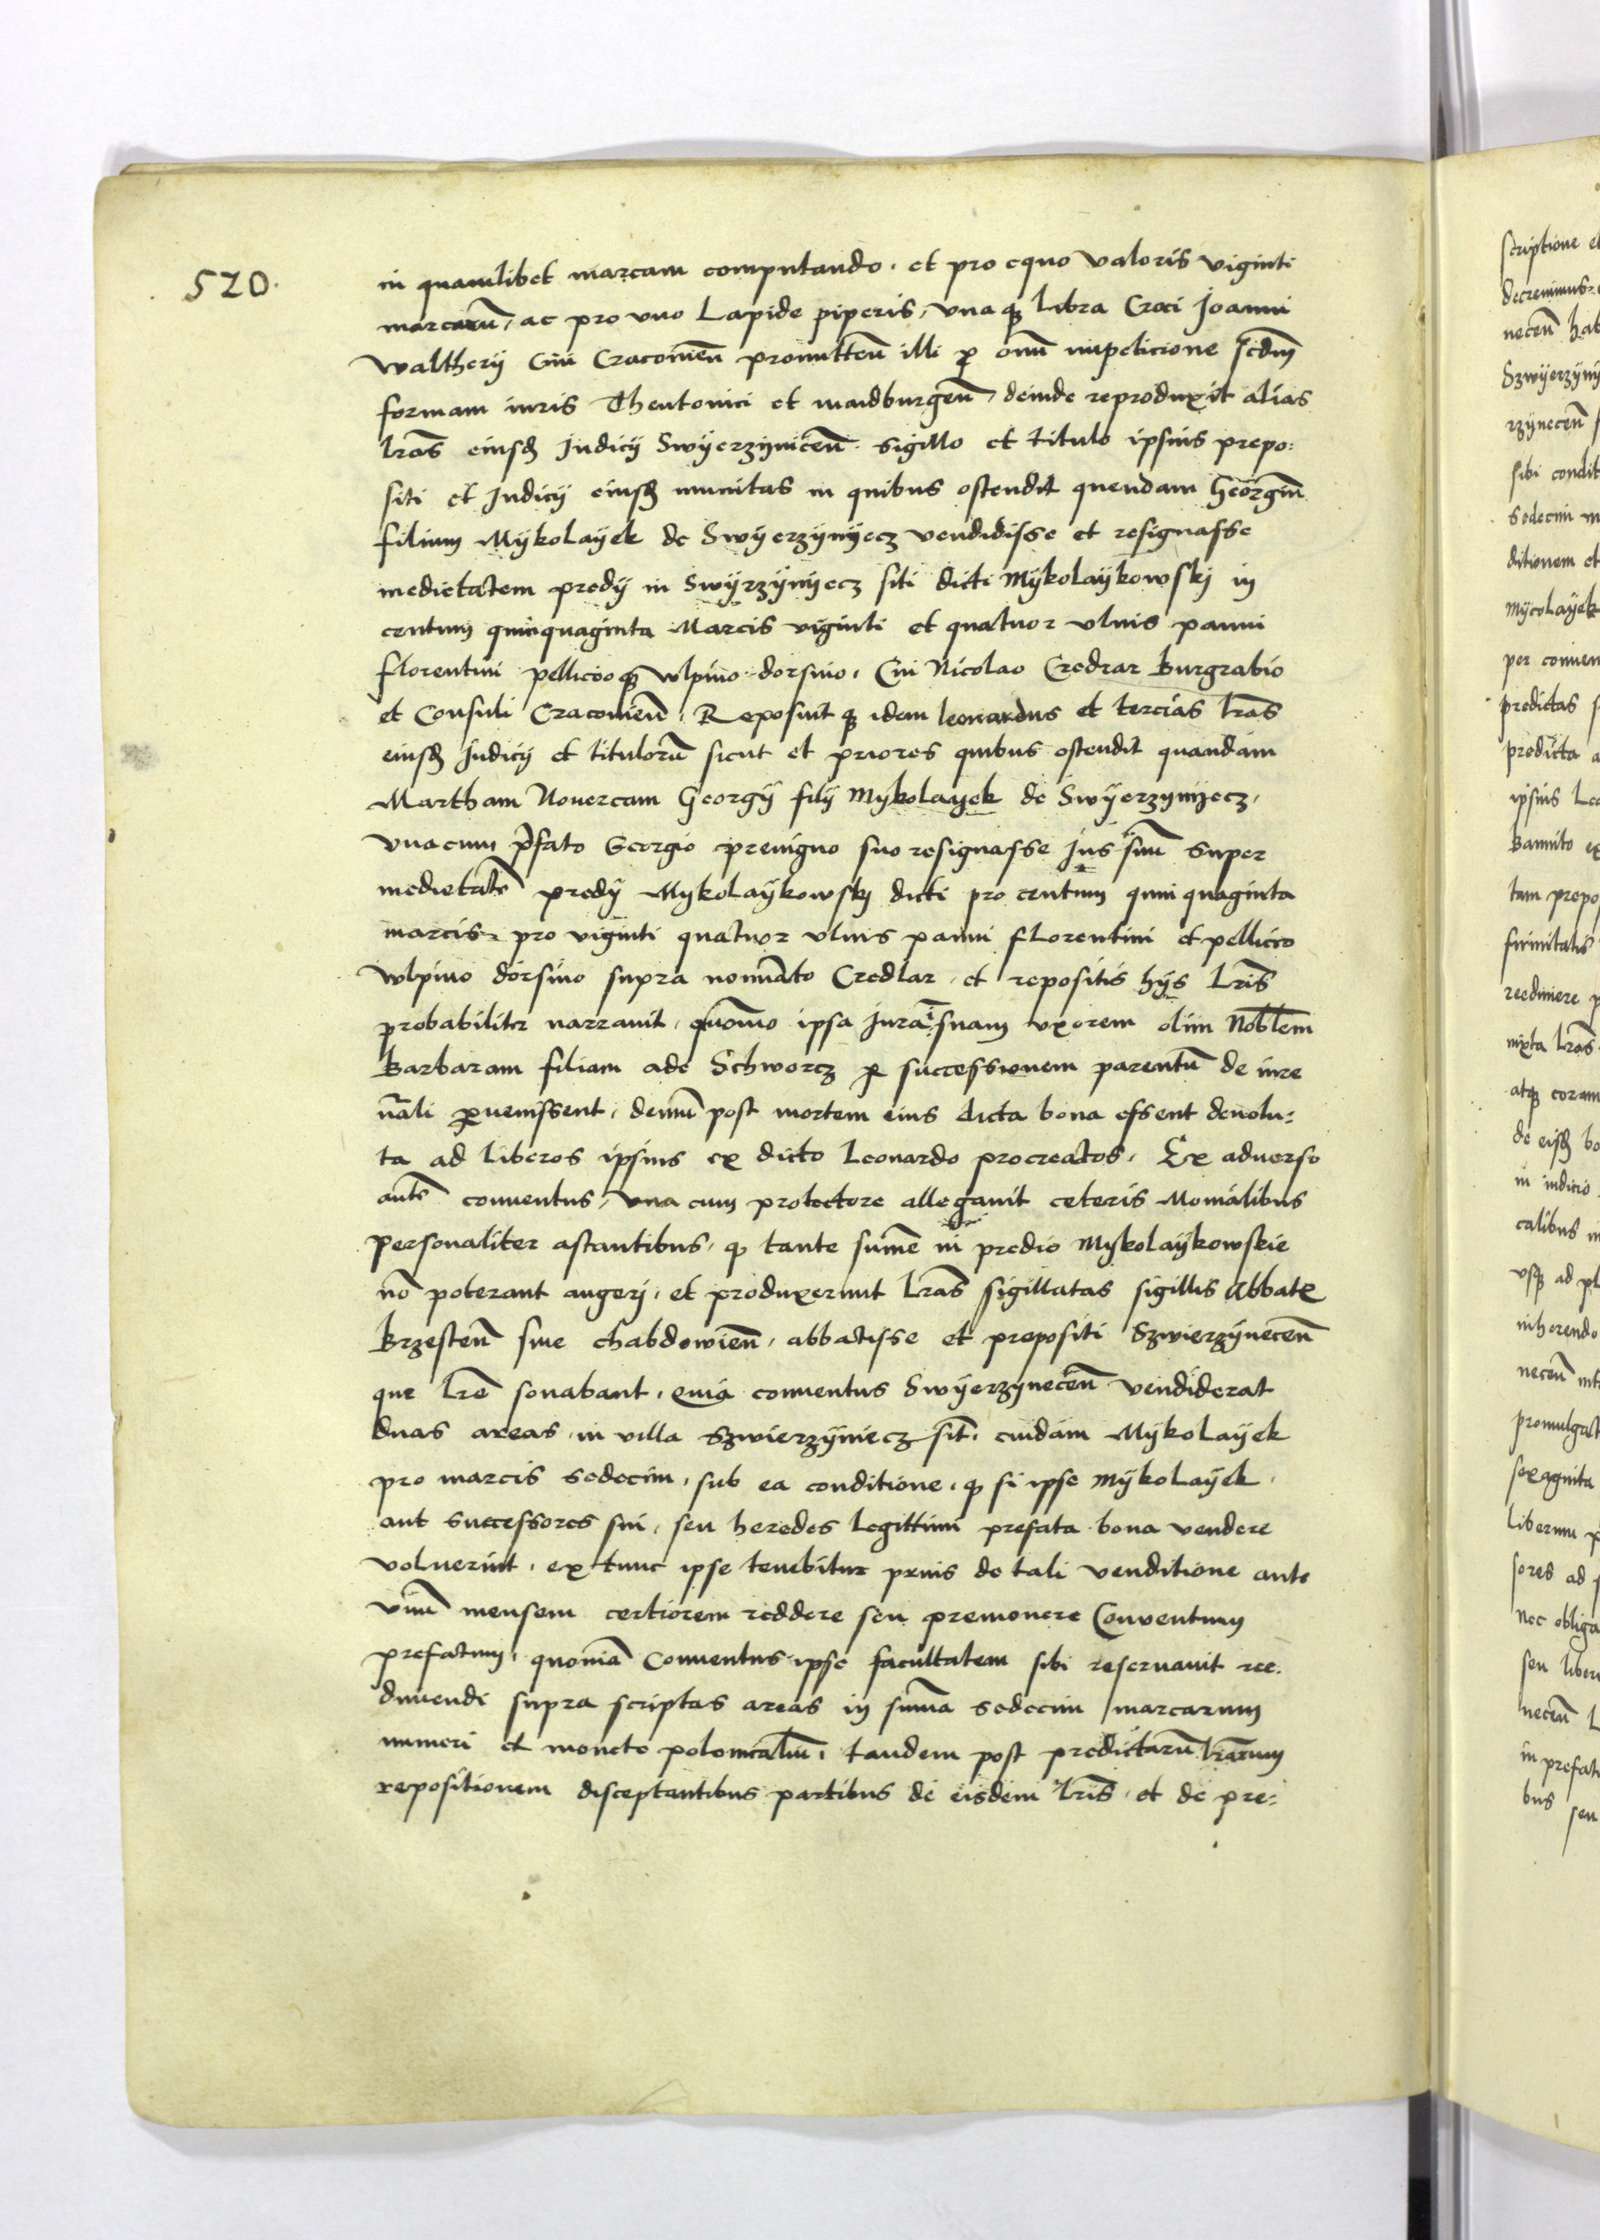 520.
in quamlibet marcam computando. et pro equo valoris viginti
marcarū, ac pro vno Lapide piperis, vna qꝫ libra Croci Joanni
Waltherij Ciui Cracouieñ promitteñ illi ꝓ omī impeticione scdm̄
formam iuris Theutonici et maidburgeñ, deinde reproduxit alias
lrās eiusdꝫ Judicij Swyerzyniceñ sigillo et titulo ipsius prepo:
siti et Judicij eiusdꝫ munitas in quibus ostendit quendam Georgiū
filium Mykolayek de Swyerzynyecz vendidisse et resignasse
medietatem predij in Swyrzynyecz siti dicti Mykolaykowskj in
centum quinquaginta Marcis viginti et quatuor vlnis panni
florentini pellicioqꝫ wlpino dorsino. Cui Nicolao Credrar Burgrabio
et Consuli Cracouieñ. Reposuitqꝫ idem leonardus et tercias lrās
eiusdꝫ Judicij et titulorū sicut et priores quibus ostendit quandam
Martham Nouercam Georgij filij Mykolayek de Swyerzynyecz,
vnacum p̄fato Georgio preuigno suo resignasse Jus suū super
medietatē predij Mykolaykowskj dicti pro centum quinquaginta
marcis, pro viginti quatuor vlnis panni florentini et pellicio
wlpino dorsino supra nomīato Credlar. et repositis hijs lrīs
probabiliter narrauit, quōmo ipsa Jura ī suam vxorem olim Nobīlem
Barbaram filiam ade Schworcz ꝑ successionem parentū de iure
nrāli ꝑuenissent, demū post mortem eius dicta bona essent deuolu:
ta ad Liberos ipsius ex dicto Leonardo procreatos. Ex aduerso
autē conuentus, vna cum protectore allegauit ceteris Monialibus
personaliter astantibus. qꝫ tante sum̄e in predio Mykolaykowskie
nō poterant augerj. et produxerunt lrās sigillatas sigillis Abbatꝭ
Brzesteñ siue chabdowieñ, abbatisse et prepositi Szwierzyneceñ
que lrē sonabant. quia conuentus Swyerzyneceñ vendiderat
duas areas in villa Szwierzyniecz sit. cuidam Mykolayek
pro marcis sedecim, sub ea conditione. qꝫ si ipse Mykolayek.
aut successores sui, seu heredes legittimi prefata bona vendere
voluerint. ex tunc ipse tenebitur prius de tali venditione ante
vnū mensem certiorem reddere seu premonere Conuentum
prefatum. quoniā Conuentus ipse facultatem sibi reseruauit ree:
dimendi supra scriptas areas in sum̄a sedecim marcarum
numeri et monete polonicaliū. tandem post predictarū lrārum
repositionem disceptantibus partibus de eisdem lrīs. et de pre: